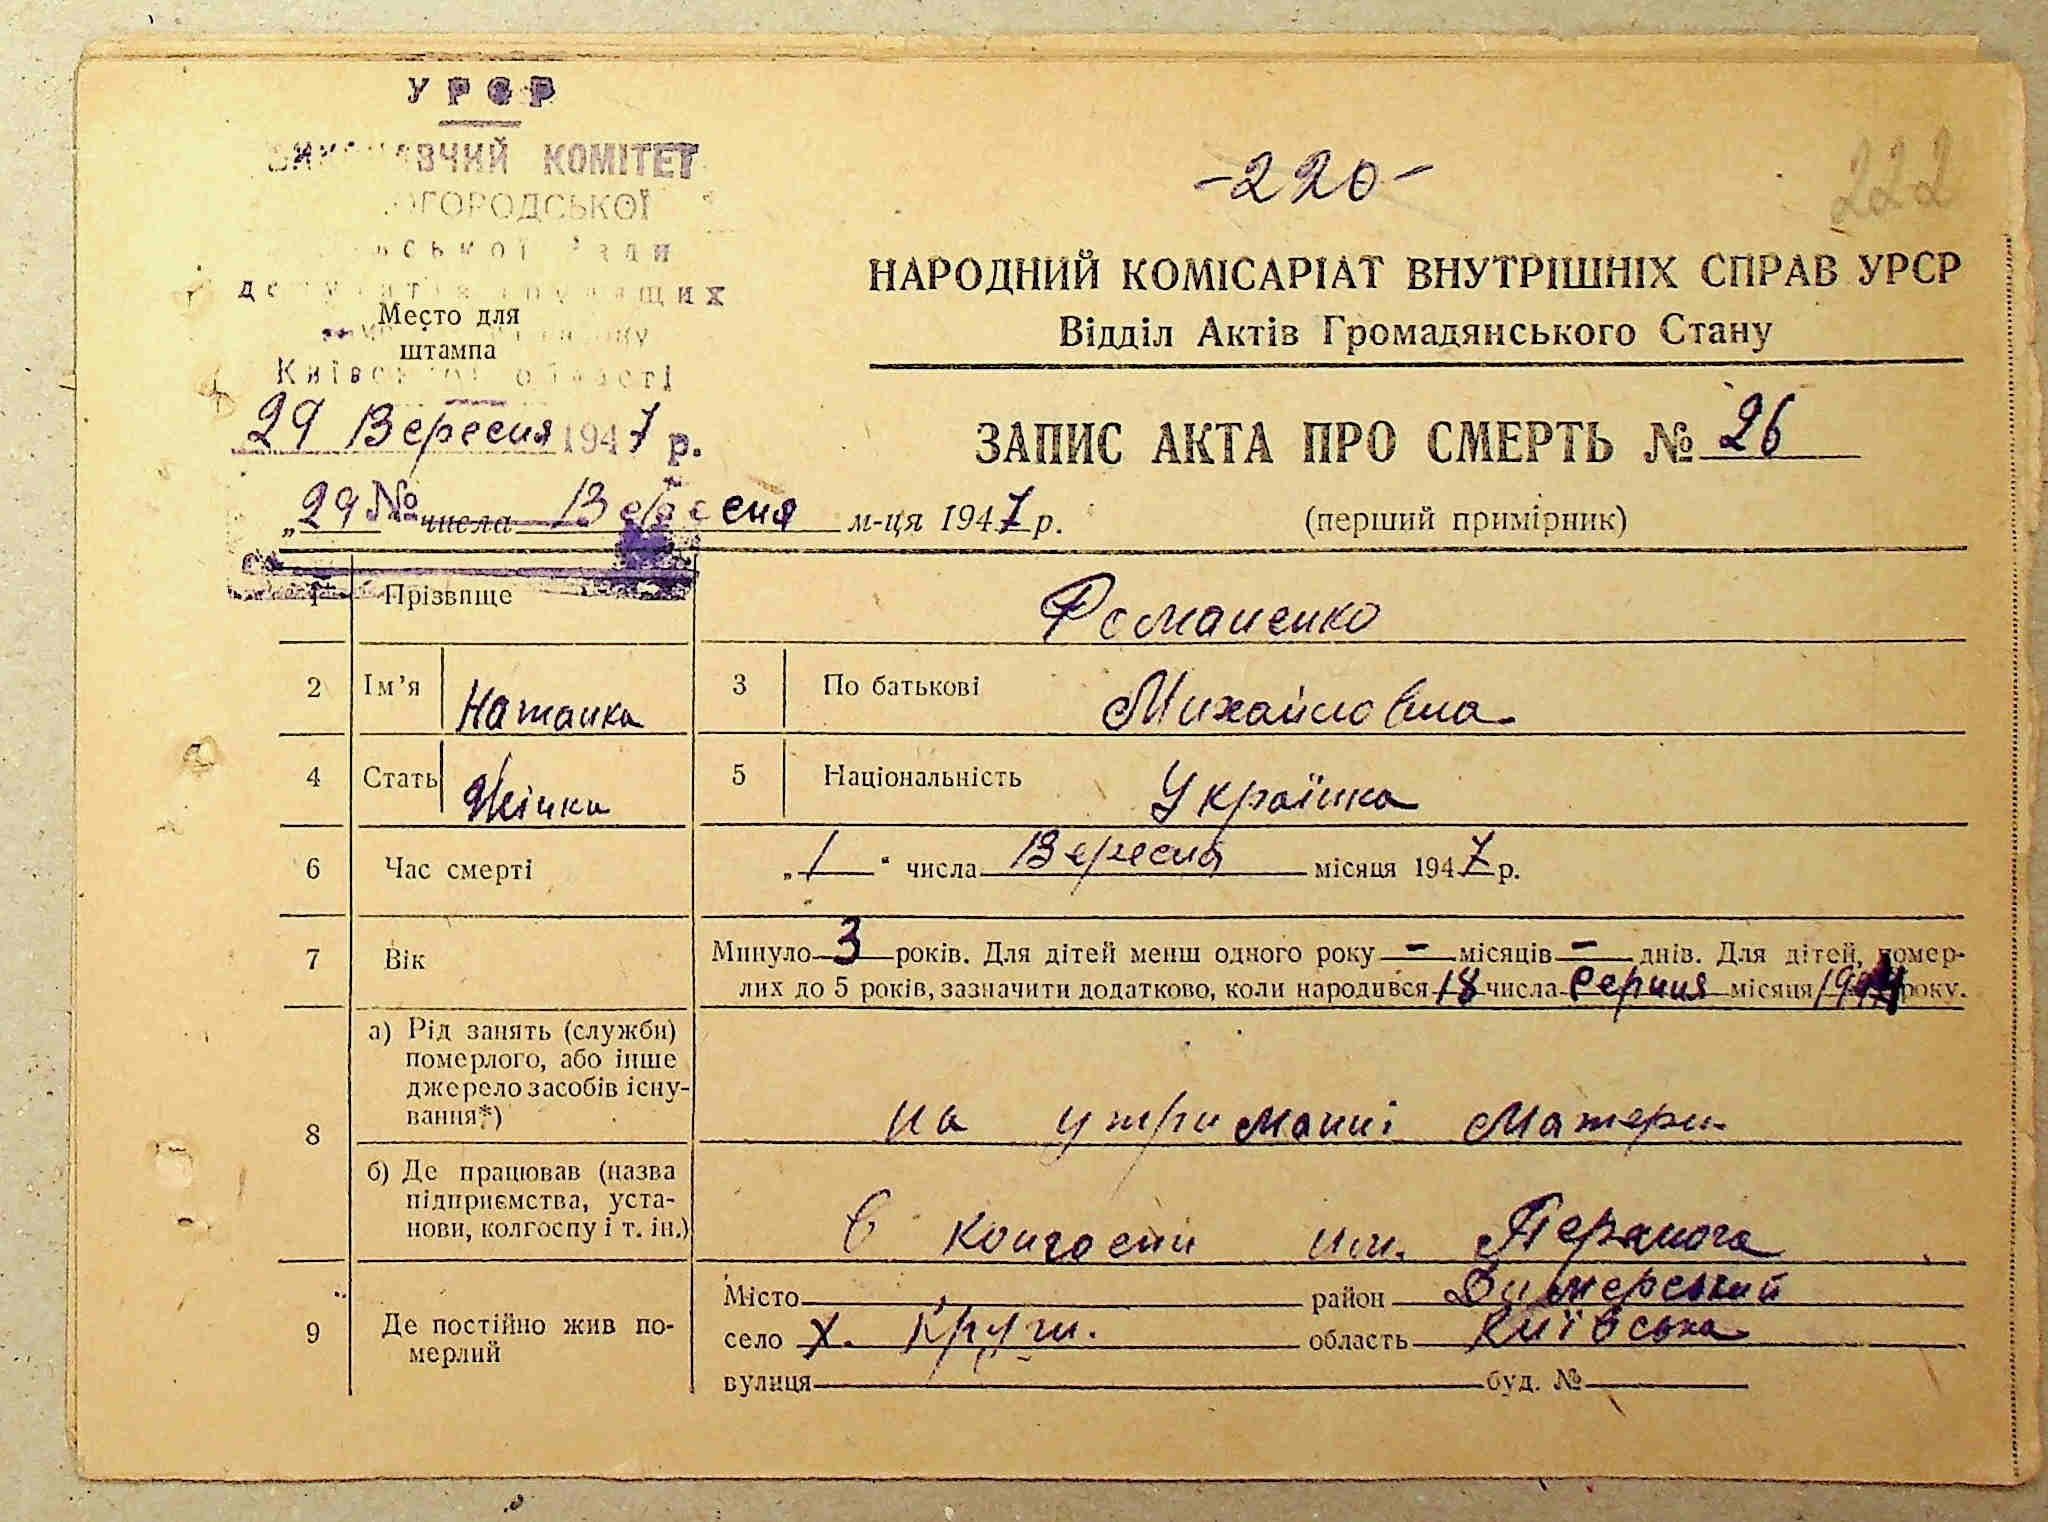 УРСР
КОМІТЕТ
-220-
222
НАРОДНИЙ КОМІСАРІАТ ВНУТРІШНІХ СПРАВ УРСР
Відділ Актів Громадянського Стану
Место для
штампа
Київської області
29 Вересня 1947 р.
ЗАПИС АКТА ПРО СМЕРТЬ № 26
„29 № числа Вересня м-ця 1947 р.
(перший примірник)
1 Прізвище Романенко
2 Ім’я Наталка 3 По батькові Михайловна
4 Стать Жінка 5 Національність Українка
6 Час смерті „1“ числа Вересня місяця 1947 р.
7 Вік Минуло 3 років. Для дітей менш одного року - місяців - днів. Для дітей, помер-
лих до 5 років, зазначити додатково, коли народився 18 числа Серпня місяця 1944 року.
8 а) Рід занять (служби)
померлого, або інше
джерело засобів існу-
вання*) на утриманні Матери
б) Де працював (назва
підприємства, уста-
нови, колгоспу і т. ін.) в Колгоспи им. Перамога
9 Де постійно жив по-
мерлий
Місто район Димерський
село х. Круги. область Київська
вулиця буд. №